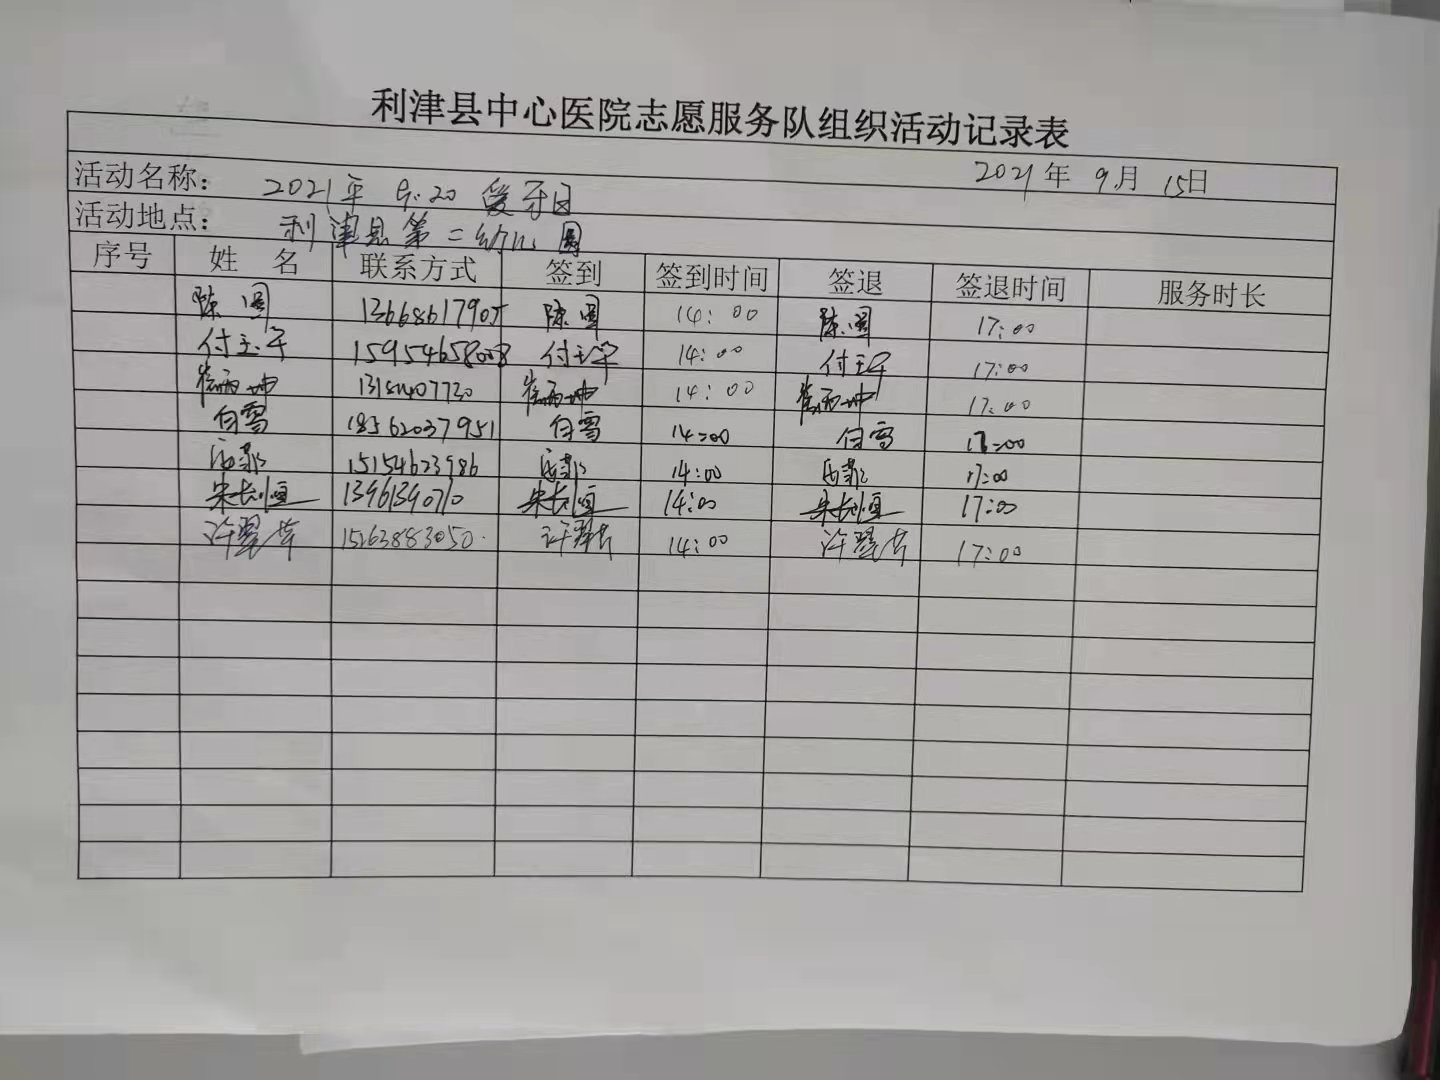 利津县中心医院志愿服务队组织活动记录表
2021年 9月 15日
活动名称： 2021年 9.20 爱牙日
活动地点： 利津县第二幼儿园
序号 姓 名 联系方式 签到 签到时间 签退 签退时间 服务时长
陈 14:00 陈 17:00
付 15954658008 付 14:00 付 17:00
崔雨坤 崔雨坤 14:00 崔雨坤 17:00
白雪 18562037951 白雪 14:00 白雪 17:00
15154623986 14:00 17:00
宋长恒 宋长恒 14:00 宋长恒 17:00
许翠芹 15263883050 许翠芹 14:00 许翠芹 17:00